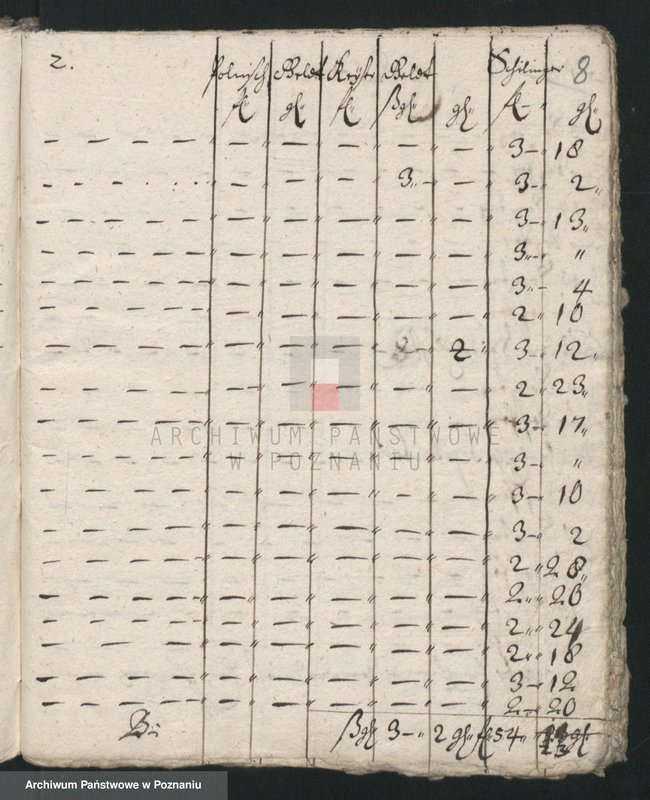 2. Polnisch Geldt Reichs Geldt Schilinger 8
fl gl fl Rthl gl fl gl
— — — — — — — — — 3 — 18
— — — — — — — 3 — — 3 — 2
— — — — — — — — — 3 — 13
— — — — — — — — — 3 — "
— — — — — — — — — 3 — 4
— — — — — — — — — 2 — 10
— — — — — — — — 2 3 — 12
— — — — — — — — — 2 — 23
— — — — — — — — — 3 — 17
— — — — — — — — — 3 — "
— — — — — — — — — 3 — 10
— — — — — — — — — 3 — 2
— — — — — — — — — 2 " 28
— — — — — — — — — 2 " 20
— — — — — — — — — 2 " 24
— — — — — — — — — 2 " 18
— — — — — — — — — 3 — 12
— — — — — — — — — 2 " 20
3 — 2 gl fl 54 23 gl
ARCHIWUM PAŃSTWOWE
W POZNANIU
Archiwum Państwowe w Poznaniu